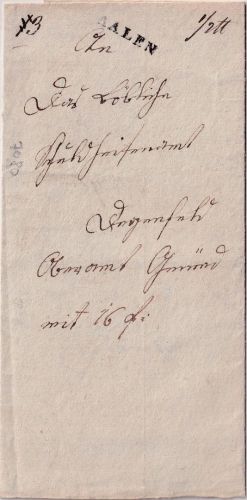 #3 AALEN 1/2 tt
An
Das Löbliche
Schuldheisenamt
Degenfeld
Oberamt Gmünd
mit 16 f: